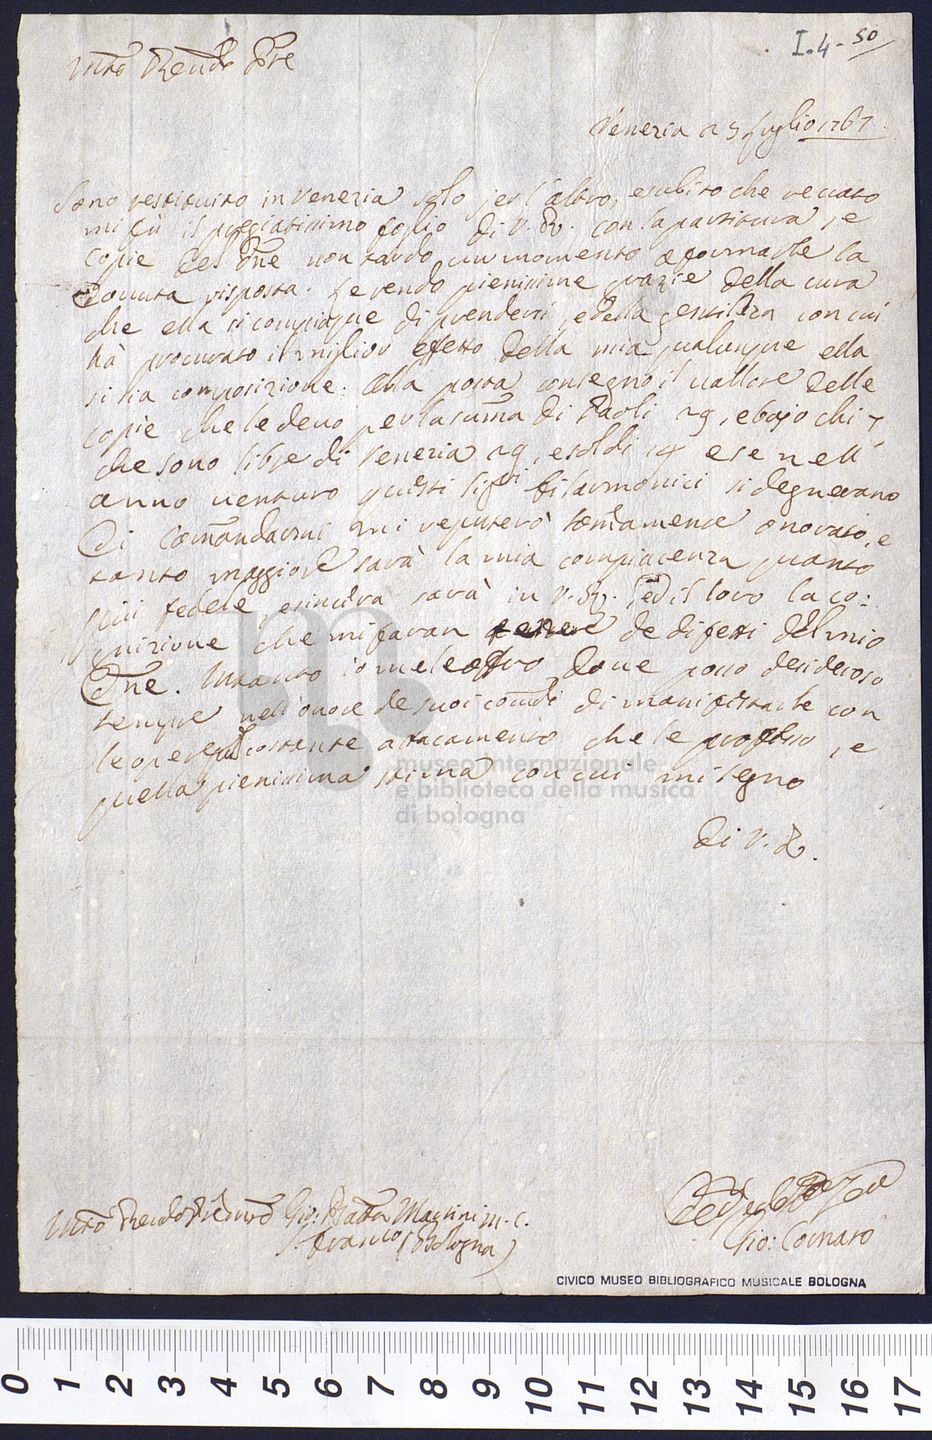 I. 4 - 50
Molto Rendo Pre
Venezia 25 luglio 1767
Sono restituito in Venezia solo jerl'altro, e subito che recato
mi fù il pregiatissimo foglio di V. R. con la partitura, e
copie del Dne non tardo un momento a tornarle la
dovuta risposta. Le rendo pienissime grazie della cura
che ella si compiacque di prendersi, e della gentilezza con cui
hà procurato il miglior effetto della mia qualunque ella
si sia composizione. Alla posta consegno il vallore delle
copie che le devo per la suma di Paoli 29, e bajochi 7
che sono lire di Venezia 29, e soldi 14 e se nell'
anno venturo questi Sigri Filarmonici si degneranno
di comandarmi mi reputerò somamente onorato, e
tanto maggiore sarà la mia compiacenza quanto
più fedele, e sincera sarà in V. R. ed il loro la co:
gnizione che mi faran de diffetti del mio
Dne. Intanto io me le offro dove posso desideroso
sempre nell'onore de suoi comdi di manifestarle con
le opere quel costante attacamento che le professo, e
quella pienissima stima con cui mi segno
di V. R.
Molto Rendo Pre Giô: Batta Martini m. c.
S. Franco (Bologna)
Giô: Cornaro
museo internazionale
e biblioteca della musica
di bologna
CIVICO MUSEO BIBLIOGRAFICO MUSICALE BOLOGNA
0 1 2 3 4 5 6 7 8 9 10 11 12 13 14 15 16 17